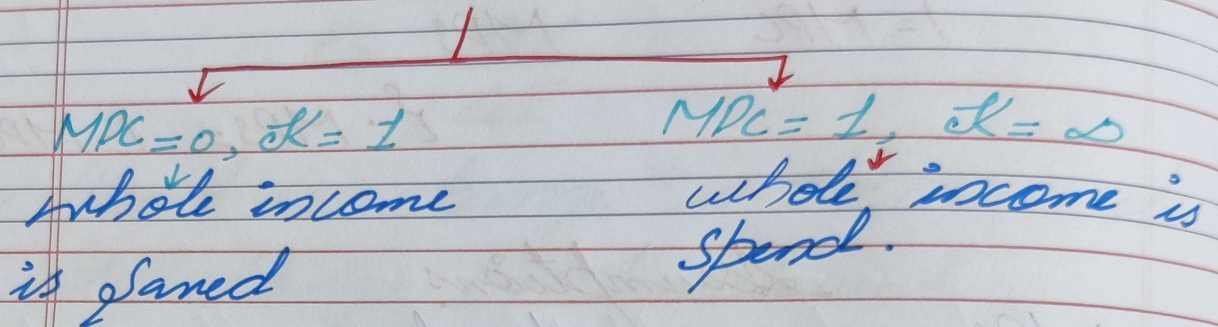 MPC = 0, K = 1
whole income
is saved
MPC = 1, K = ∞
whole income is
spend.